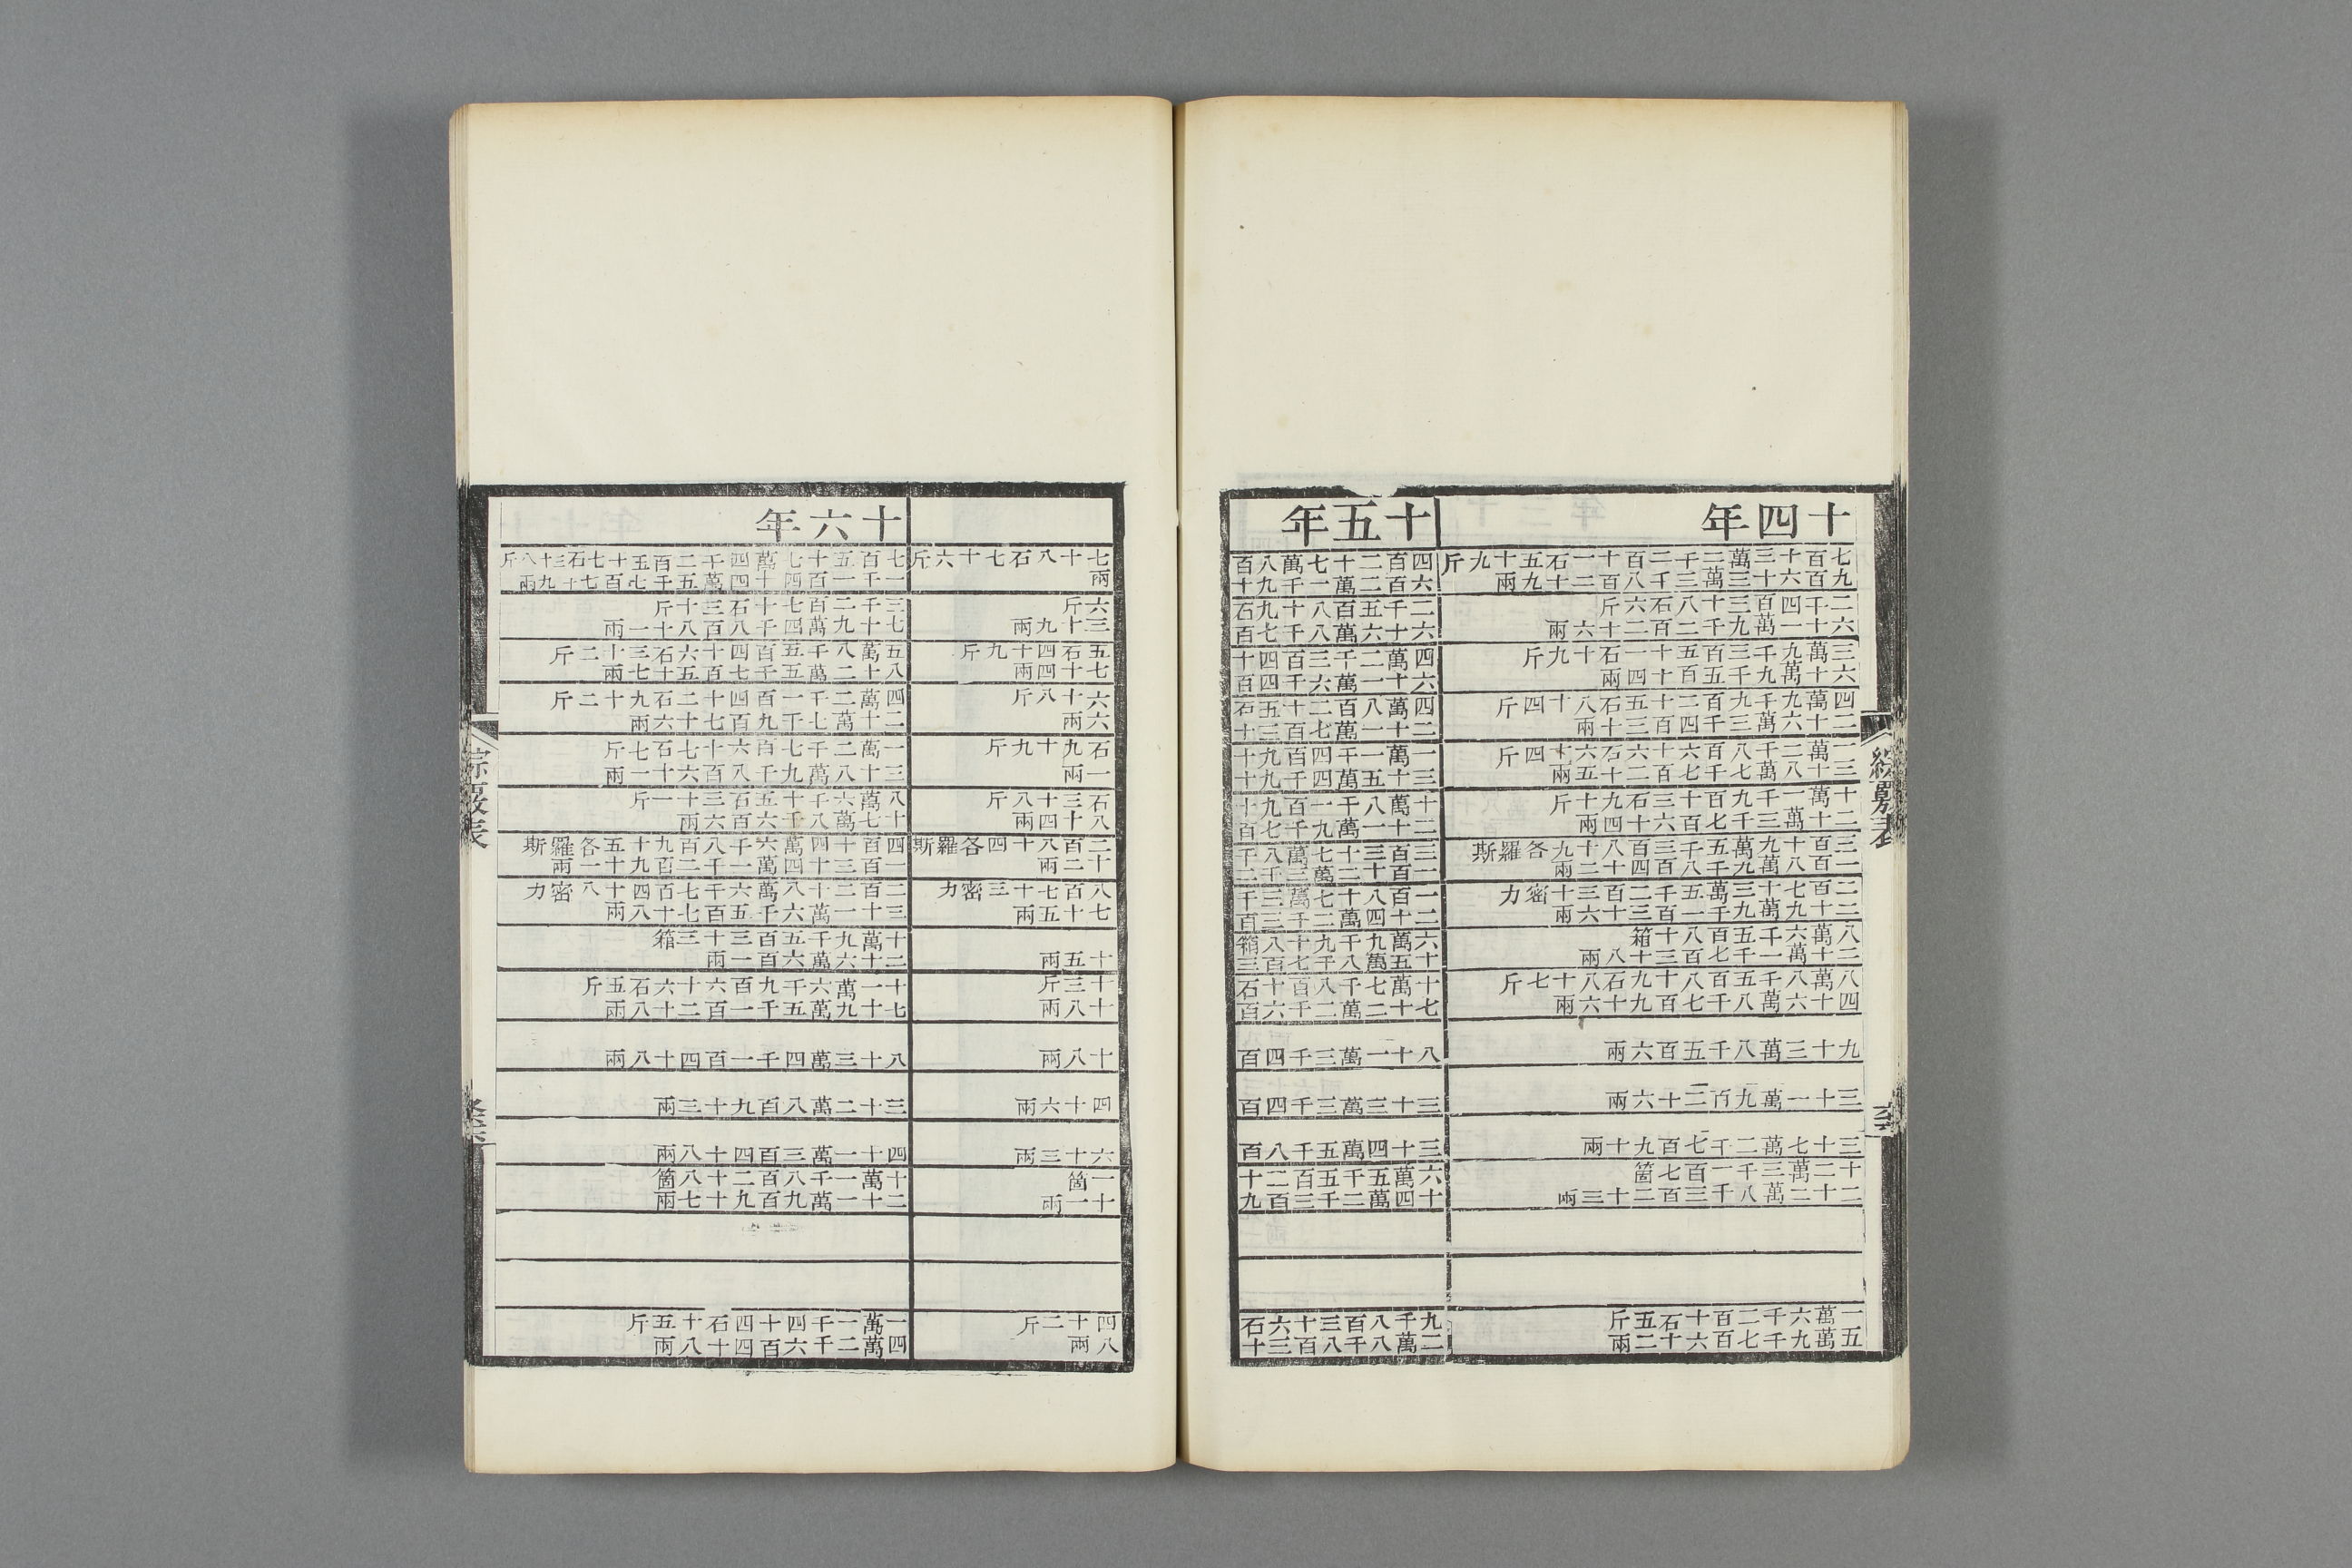 綜覈表
十四年
七百十三萬二千二百十一石五十九斤
九百六十三萬三千八百二十九兩
二千四百三十八石六斤
六十一萬九千二百二十六兩
三萬九千三百五十一石十九斤
六十萬九千五百十四兩
四萬九千九百二十五石八十四斤
二十六萬三千四百三十兩
一萬二千八百六十六石六十四斤
三十八萬七千七百二十五兩
十萬一千九百十三石九十斤
二十萬三千七百六十四兩
三百十九萬五千三百八十九各羅斯
一百八萬九千八百四十二兩
二百七十三萬五千二百三十密力
二十九萬九千一百三十六兩
八萬六千五百八十箱
二十萬一千七百三十八兩
八萬八千五百八十九石八十七斤
四十六萬八千七百九十六兩
九十三萬八千五百六兩
三十一萬九百二十六兩
三十七萬二千七百九十兩
十二萬三千一百七箇
二十二萬八千三百二十三兩
一萬六千二百十石五斤
五萬九千七百六十二兩
十五年
四百二十七萬八百
六百二萬一千九十
二千五百八十九石
六十六萬八千七百
四萬二千三百四十
六十一萬六千四百
四萬八百二十五石
二十一萬七百三十
一萬一千四百九十
三十五萬四千九十
十萬八千一百九十
二十一萬九千七百
三百三十七萬八千
一百十二萬三千二
一百八十七萬三千
二十四萬二千三百
六萬九千九十八箱
十五萬八千七百三
十萬七千八百十石
七十二萬二千六百
八十一萬三千四百
三十三萬三千四百
三十四萬五千八百
六萬五千五百二十
十四萬二千三百九
九千八百三十六石
二萬八千八百三十
七十八石七十六斤
兩
六斤
三十九兩
五石四十九斤
七十四兩
六十八斤
六兩
石九十九斤
一兩
石三十八斤
八十四兩
二百八十四各羅斯
十二兩
八百七十三密力
七十五兩
十五兩
十三斤
十八兩
十八兩
四十六兩
六十三兩
一箇
十一兩
四十二斤
八兩
十六年
七百五十七萬四千二百五十七石三十八斤
一千一百四十四萬五千七百七十九兩
三千二百七十石三十斤
七十九萬四千八百八十一兩
五萬八千五百四十六石三十二斤
八十二萬五千七百五十七兩
四萬二千一百四十二石九十二斤
二十萬七千九百七十六兩
一萬二千七百六十七石七斤
三十八萬九千八百六十一兩
八萬六千十五石三十一斤
十七萬八千六百六兩
四百十四萬六千八百九十五各羅斯
一百三十四萬一千二百九十一兩
二百二十八萬六千七百四十八密力
三十一萬六千五百七十八兩
十萬九千五百三十三箱
二十六萬六百一兩
十一萬六千九百六十六石五斤
七十九萬五千一百二十八兩
八十三萬四千一百四十八兩
三十二萬八百九十三兩
四十一萬三百四十八兩
十萬一千八百二十八箇
二十一萬九百九十七兩
一萬一千四十四石十五斤
四萬二千六百四十八兩
綜覈表